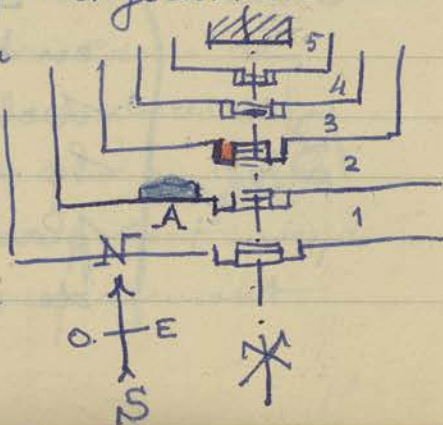 5
4
3
2
A
1
N
O. E
S